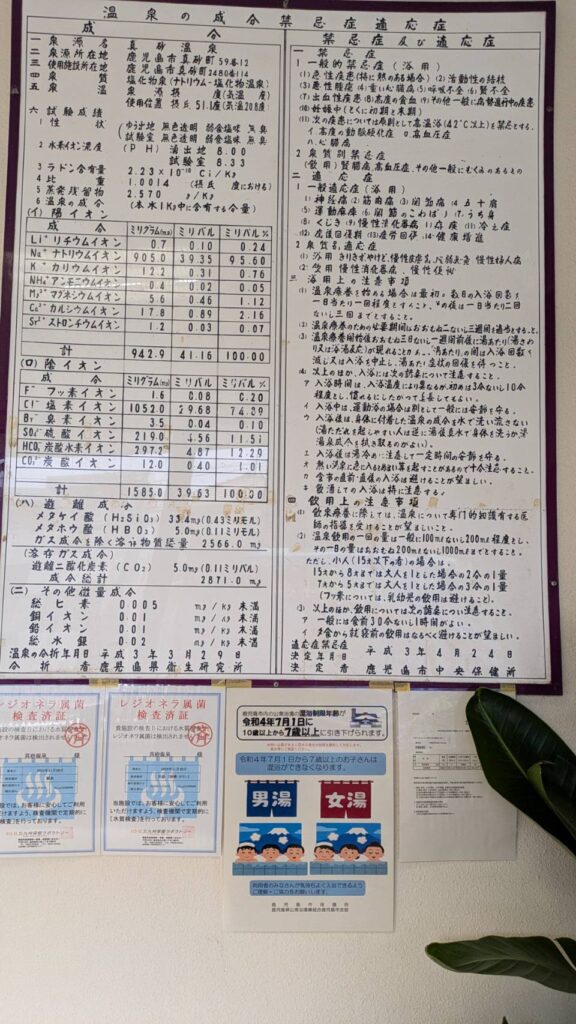 温泉の成分禁忌症適応症
成分
一 泉源名 真砂温泉
二 泉源所在地 鹿児島市真砂町59番12
三 使用施設所在地 鹿児島市真砂町2480番114
四 泉質 塩化物泉(ナトリウム-塩化物温泉)
五 泉温 泉源 摂氏 度(気温 度)
使用位置 摂氏 51.1度(気温20.8度)
六 試験成績
1 性状 (ゆう出地 無色透明 弱食塩味 無臭
試験室 無色透明 弱食塩味 無臭
2 水素イオン濃度 (PH) 湧出地 8.00
試験室 8.33
3 ラドン含有量 2.23×10⁻¹⁰ Ci/Kg
4 比重 1.0014 (摂氏 度における)
5 蒸発残留物 2.570 g/Kg
6 温泉の成分 (本水1Kg中に含有する分量)
(イ) 陽イオン
成分 ミリグラム(mg) ミリバル ミリバル%
Li⁺ リチウムイオン 0.7 0.10 0.24
Na⁺ ナトリウムイオン 905.0 39.35 95.60
K⁺ カリウムイオン 12.2 0.31 0.76
NH₄⁺ アンモニウムイオン 0.4 0.02 0.05
Mg²⁺ マグネシウムイオン 5.6 0.46 1.12
Ca²⁺ カルシウムイオン 17.8 0.89 2.16
Sr²⁺ ストロンチウムイオン 1.2 0.03 0.07
計 942.9 41.16 100.00
(ロ) 陰イオン
成分 ミリグラム(mg) ミリバル ミリバル%
F⁻ フッ素イオン 1.6 0.08 0.20
Cl⁻ 塩素イオン 1052.0 29.68 74.89
Br⁻ 臭素イオン 3.5 0.04 0.10
SO₄²⁻ 硫酸イオン 219.0 4.56 11.51
HCO₃⁻ 炭酸水素イオン 297.2 4.87 12.29
CO₃²⁻ 炭酸イオン 12.0 0.40 1.01
計 1585.0 39.63 100.00
(ハ) 遊離成分
メタケイ酸 (H₂SiO₃) 33.4mg(0.43ミリモル)
メタホウ酸 (HBO₂) 5.0mg(0.11ミリモル)
ガス成分を除く溶存物質総量 2566.0 mg
(溶存ガス成分)
遊離二酸化炭素 (CO₂) 5.0mg(0.11ミリバル)
成分総計 2871.0 mg
(ニ) その他微量成分
総ヒ素 0.005 mg/Kg 未満
銅イオン 0.01 mg/Kg 未満
鉛イオン 0.01 mg/Kg 未満
総水銀 0.02 mg/Kg 未満
温泉の分析年月日 平成3年3月29日
分析者 鹿児島県衛生研究所
禁忌症及び適応症
一 禁忌症
1 一般的禁忌症(浴用)
(1)急性疾患(特に熱のある場合) (2)活動性の結核
(3)悪性腫瘍 (4)重い心臓病 (5)呼吸不全 (6)腎不全
(7)出血性疾患 (8)高度の貧血 (9)その他一般に病勢進行中の疾患
(10)妊娠中(とくに初期と末期)
(11)次の疾患については原則として高温浴(42℃以上)を禁忌とする。
イ.高度の動脈硬化症 ロ.高血圧症
ハ.心臓病
2 泉質別禁忌症
(飲用) 腎臓病、高血圧症、その他一般にむくみのあるもの
二 適応症
1 一般適応症(浴用)
(1)神経痛 (2)筋肉痛 (3)関節痛 (4)五十肩
(5)運動麻痺 (6)関節のこわばり (7)うち身
(8)くじき (9)慢性消化器病 (10)痔疾 (11)冷え症
(12)病後回復期 (13)疲労回復 (14)健康増進
2 泉質別適応症
(1) 浴用 きりきず、やけど、慢性皮膚病、虚弱児童、慢性婦人病
(2) 飲用 慢性消化器病、慢性便秘
三 浴用上の注意事項
(1) 温泉療養を始める場合は最初の数日の入浴回数を
一日当たり一回程度とすること、その後は一日当たり二回
ないし三回までとすること。
(2) 温泉療養のための必要期間はおおむね二ないし三週間を適当とすること。
(4) 以上のほか、入浴には次の諸点について注意すること。
ア 入浴時間は、入浴温度により異なるが、初めは3分ないし10分
程度とし、慣れるにしたがって延長してもよい。
イ 入浴中は、運動浴の場合は別として一般には安静を守る。
ウ 入浴後は、身体に付着した温泉の成分を水で洗い流さない
(湯ただれを起しやすい人は逆に湯後真水で身体を洗うか
温泉成分を拭き取るのがよい)。
エ 入浴後は湯冷めに注意して一定時間の安静を守る。
オ 熱い温泉に急に入るとめまい等を起すことがあるので十分注意すること。
カ 食事の直前・直後の入浴は避けることが望ましい。
キ 飲酒しての入浴は特に注意する。
四 飲用上の注意事項
(1) 飲泉療養に際しては、温泉について専門的知識を有する医
師の指導を受けることが望ましいこと。
(2) 温泉飲用の一回の量は一般に100mlないし200ml程度とし、
その一日の量はおおむね200mlないし1000mlまでとすること。
ただし、小人(15才以下の者)の場合は、
15才から8才までは大人を1とした場合の2分の1量
7才から5才までは大人を1とした場合の3分の1量
(フッ素については、乳幼児の飲用は避けること)。
(3) 以上のほか、飲用については次の諸点につい注意すること。
ア 一般には食前30分ないし1時間がよい。
イ 夕食から就寝前の飲用はなるべく避けることが望ましい。
適応症禁忌症
決定年月日 平成3年4月24日
決定者 鹿児島市中央保健所
レジオネラ属菌
検査済証
済
真砂温泉 様
レジオネラ属菌
検査済証
貴施設の検査における水質検査で
レジオネラ属菌は検出されませんでした
済
真砂温泉 様
当施設では、お客様に安心してご利用
いただけますよう、検査機関で定期的に
【水質検査】を行っております。
鹿児島市内の公衆浴場の混浴制限年齢が
令和4年7月1日に
10歳以上から7歳以上に引き下げられます。
令和4年7月1日から7歳以上のお子さんは
混浴ができなくなります。
男湯
女湯
利用者のみなさんが気持ちよく入浴できるよう
ご理解・ご協力をお願いします。
鹿児島市保健所
鹿児島県公衆浴場業組合鹿児島市支部